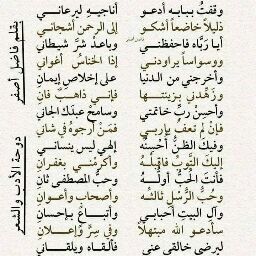 وقفتُ ببابه أدعو أناجيهِ ليرعاني
ذليلًا خاضعاً أشكو إلى الرحمنِ أشجاني
أيا ربّاه فاحفظني وباعدْ شرَّ شيطاني
ووسواساً يراودني إذا الخناسُ أغواني
وأخرجني من الدنيا على إخلاصِ إيمانِ
وزهّدني بزينتها فإني ذاهبٌ فانِ
وأحسنْ ربّ خاتمتي وسامحْ عبدَك الجاني
فإنْ لم تعفُ ياربي فمَنْ أرجوهُ في شاني
وفيكَ الظنُّ أحسنُهُ إلهي ليس ينساني
إليكَ التَّوبُ فاقبلْهُ وأكرمْني بغفرانِ
فأنتَ الحُبُّ أولُهُ وحبُّ المصطفى ثانِ
وحُبُّ الرسْلِ ثالثُه وأصحابٍ وأعوانِ
وآل البيتِ أحبابي وأتباعٍ بإحسانِ
سأدعو الله مبتهلاً وفي سِرٍّ وإعلانِ
ليرضى خالقي عني فألقاه ويلقاني
بقلم فاضل أصفر
دوحة الأدب والشعر